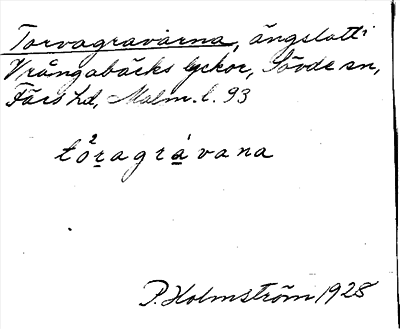 Torvagravarna, ängslott i
Vrångabäcks lyckor, Sövde sn,
Färs hd, Malm. l. 93
tȯ²ragrávana
P. Holmström 1928